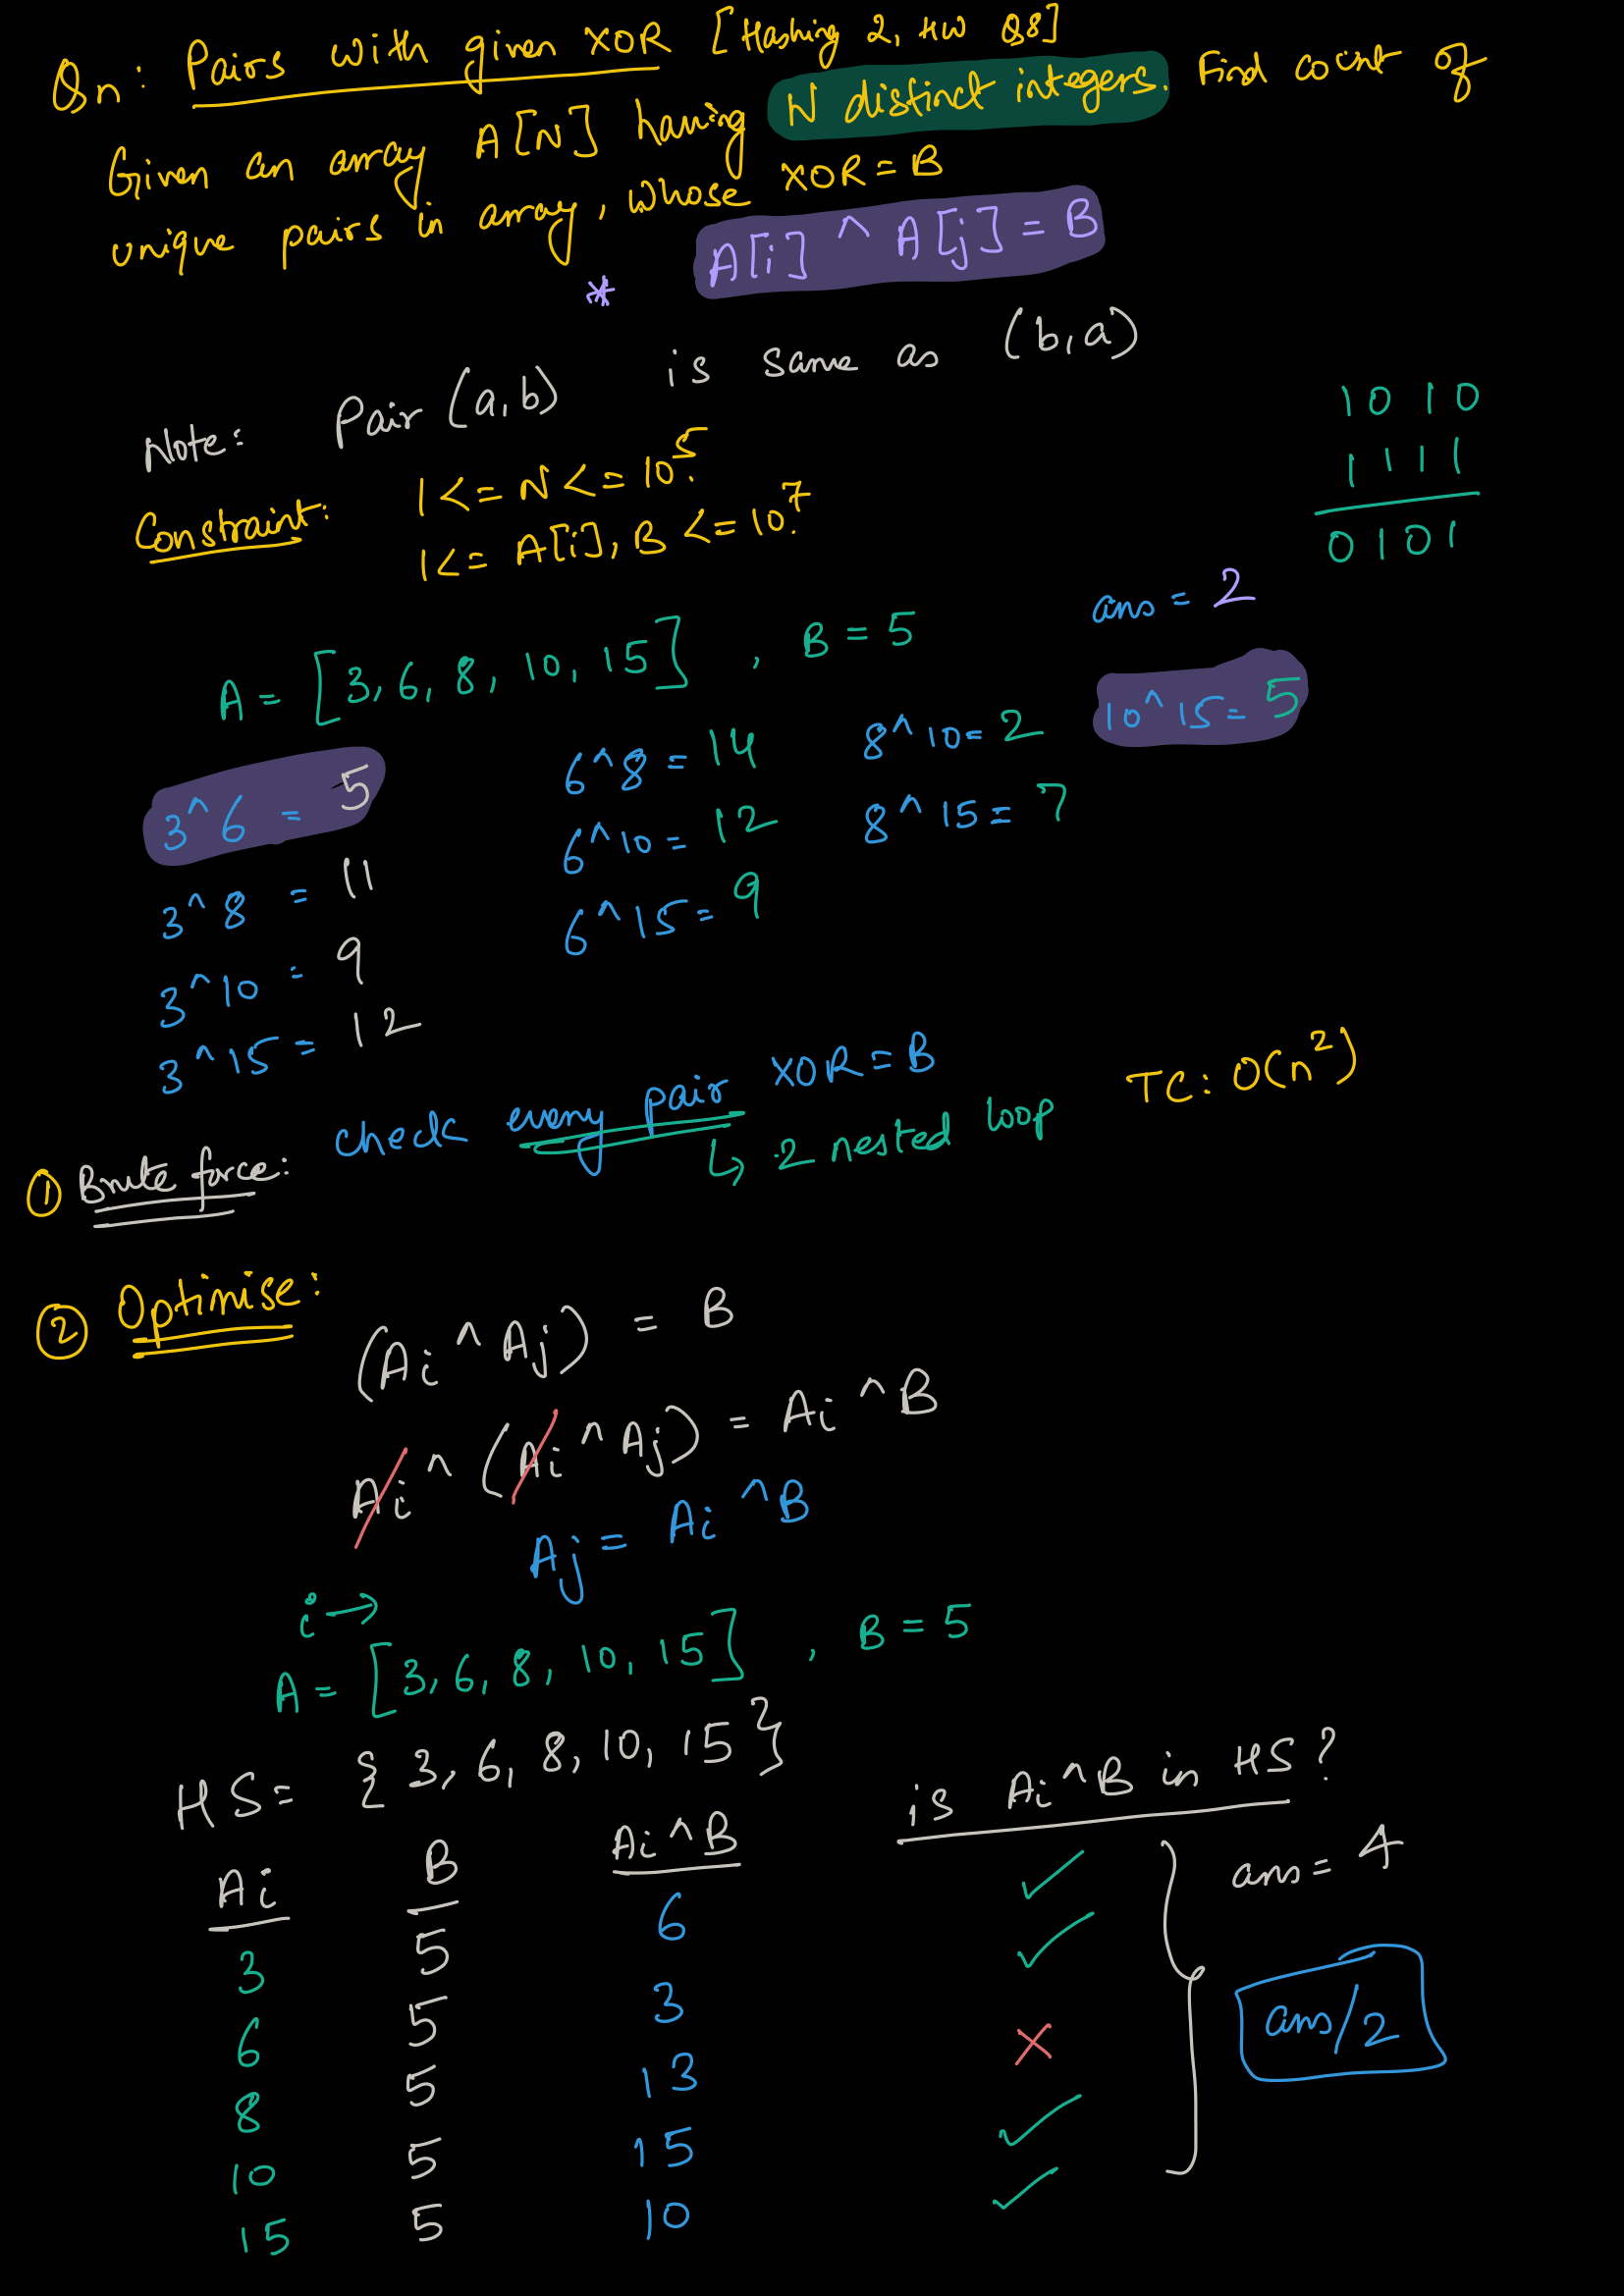 Qn: Pairs with given XOR [Hashing 2, HW Q8]
Given an array A[N] having N distinct integers. Find count of
unique pairs in array, whose XOR = B
* A[i] ^ A[j] = B
Note: Pair (a,b) is same as (b,a)
Constraint: 1 <= N <= 10^5.
1 <= A[i], B <= 10^7.
1 0 1 0
1 1 1 1
0 1 0 1
A = [3, 6, 8, 10, 15] , B = 5
ans = 2
3^6 = 5
3^8 = 11
3^10 = 9
3^15 = 12
6^8 = 14
6^10 = 12
6^15 = 9
8^10 = 2
8^15 = 7
10^15 = 5
① Brute force: check every pair XOR = B
↳ 2 nested loop
TC: O(n²)
② Optimise:
(Ai ^ Aj) = B
Ai ^ (Ai ^ Aj) = Ai ^ B
Aj = Ai ^ B
i →
A = [3, 6, 8, 10, 15] , B = 5
HS = {3, 6, 8, 10, 15}
Ai B Ai ^ B is Ai ^ B in HS?
3 5 6 ✓
6 5 3 ✓
8 5 13 ✗
10 5 15 ✓
15 5 10 ✓
ans = 4
ans/2